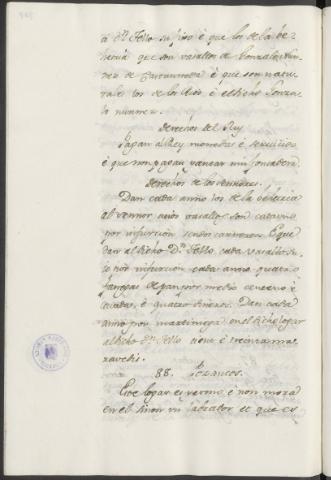 á Dⁿ Tello su fijo é que los de la be-
hetria que son vasallos de Gonzalo Nu-
ñez de é que son natu-
rales los de é el dicho Gonza-
lo nunnez.
Derechos del Rey
Pagan al Rey monedas é servicios
é que non pagan yantar nin fonsadera
Derechos de los sennores.
Dan cada anno los de la behetria
al sennor cuios vasallos son cada uno
por infurcion sendos carneros. E que
dan al dicho Dⁿ Tello cada vasallo su-
io por infurcion cada anno quatro
fanegas de pan por medio centeno é
cevada, é quatro dineros. Dan cada
anno por martiniega en el dicho logar
al dicho Dⁿ Tello ciento é treinta ma-
ravedis.
88.
Este logar es yermo é non mora
en el sinon un labrador et que es